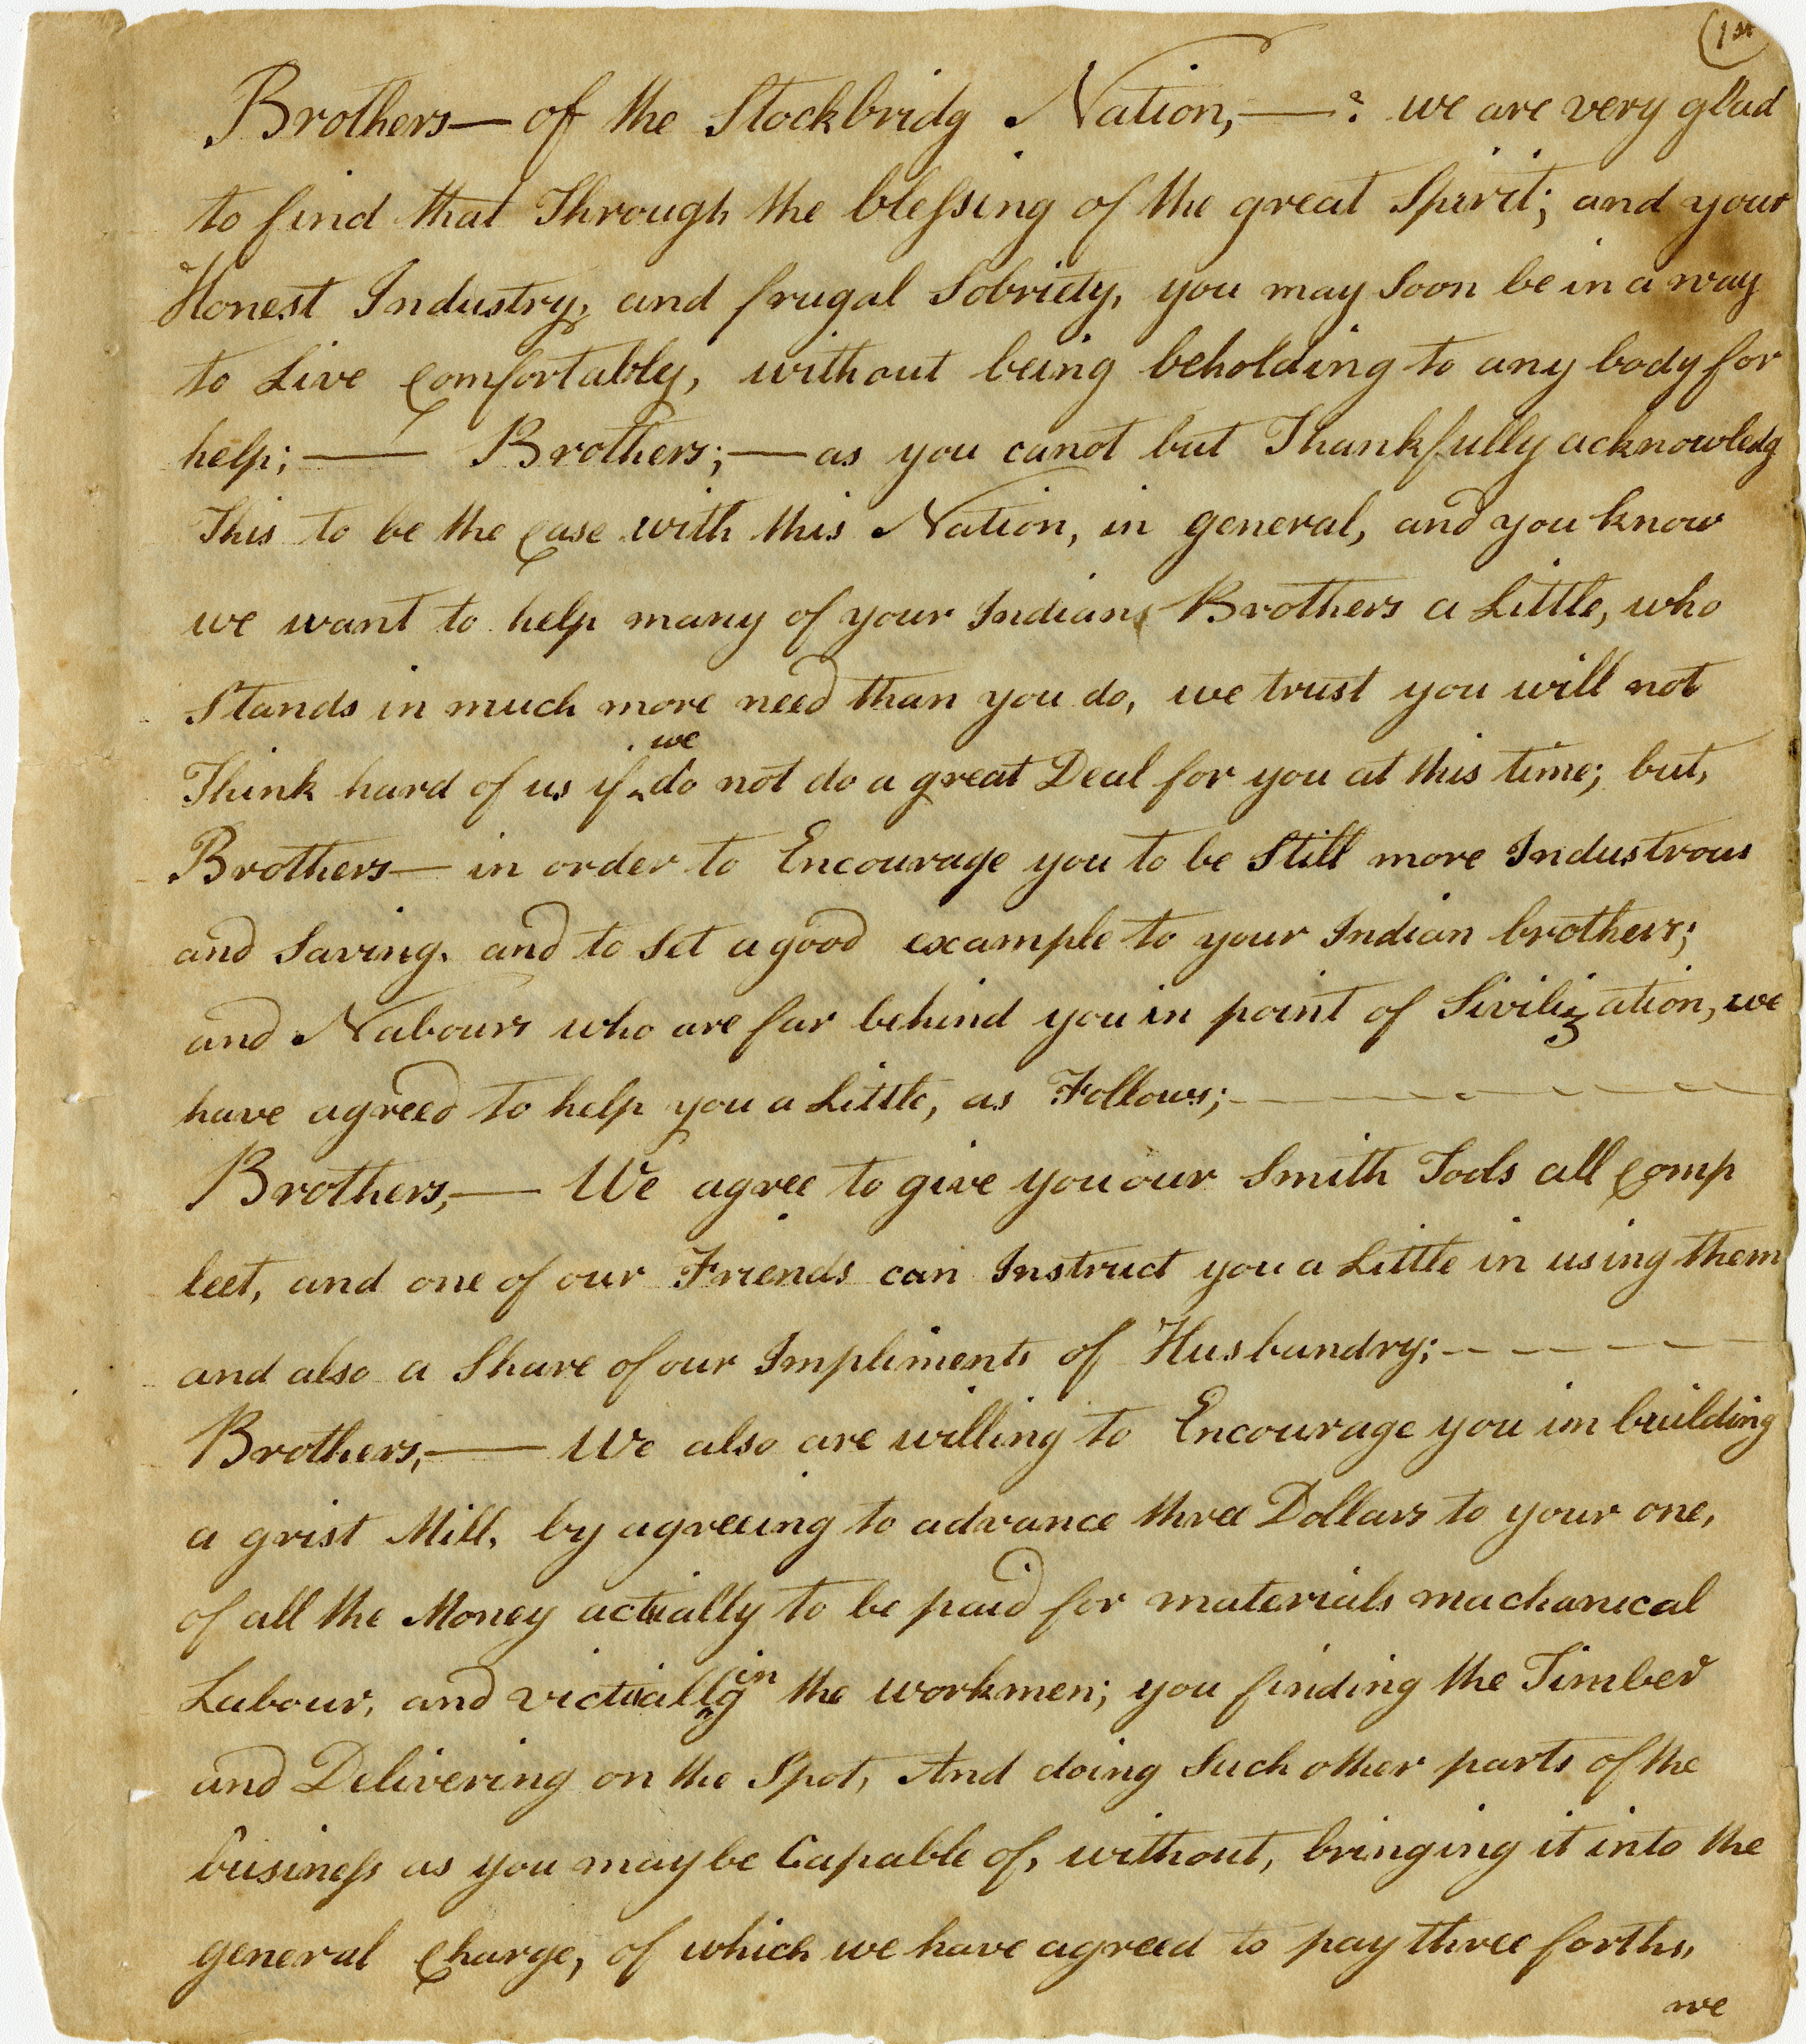 (1st
Brothers— of the Stockbridg Nation,—: we are very glad
to find that Through the blessing of the great Spirit; and your
Honest Industry, and frugal Sobriety, you may Soon be in a way
to Live comfortably, without being beholding to any body for
help;— Brothers;— as you canot but Thankfully acknowledg
This to be the case with this Nation, in general, and you know
we want to help many of your Indian Brothers a Little, who
Stands in much more need than you do, we trust you will not
we
Think hard of us if ‸ do not do a great Deal for you at this time; but,
Brothers— in order to Encourage you to be Still more Industrous
and Saving. and to Set a good example to your Indian brothers;
and Nabours who are far behind you in point of Sivilization, we
have agreed to help you a Little, as Follows;— — — — — —
Brothers,— We agree to give you our Smith Tools all comp
leet, and one of our Friends can Instruct you a Little in using them
and also a Share of our Impliments of Husbandry;— — — — —
Brothers,— We also are willing to Encourage you in building
a grist Mill, by agreeing to advance three Dollars to your one,
of all the Money actually to be paid for materials machanical
in
Labour, and victuall‸g the workmen; you finding the Timber
and Delivering on the Spot, And doing Such other parts of the
business as you may be Capable of, without, bringing it into the
general charge, of which we have agreed to pay three forths,
we